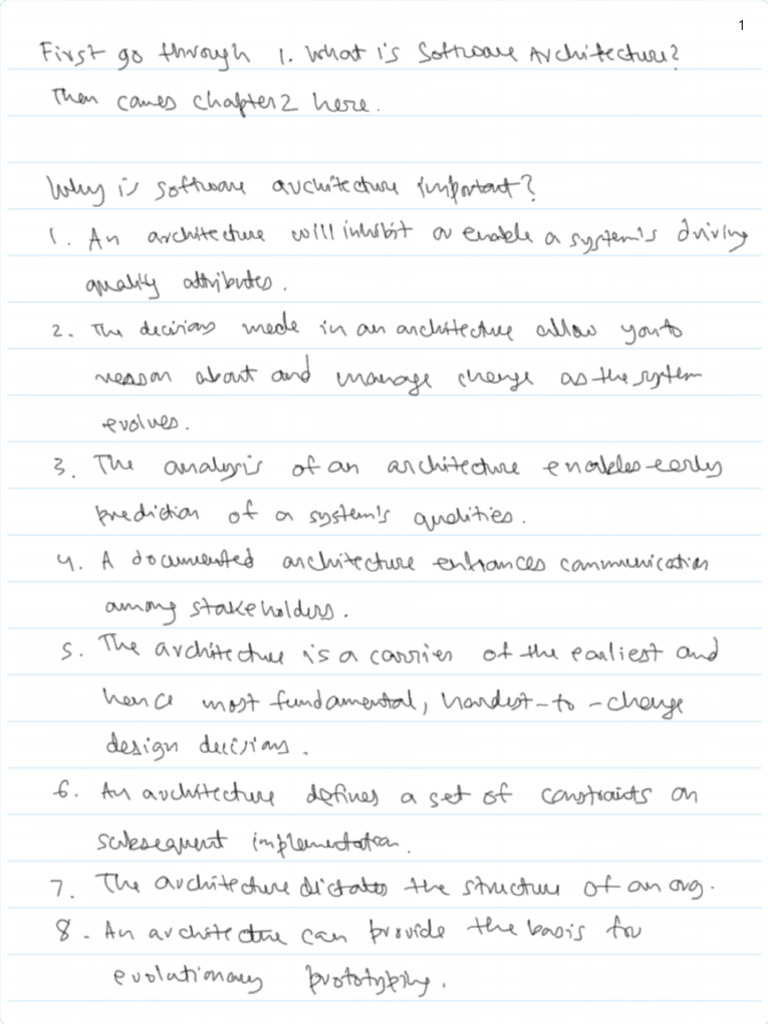 1
First go through 1. What is Software Architecture?
Then comes chapter 2 here.
Why is software architecture important?
1. An architecture will inhibit or enable a system's driving
quality attributes.
2. The decisions made in an architecture allow you to
reason about and manage change as the system
evolves.
3. The analysis of an architecture enables early
prediction of a system's qualities.
4. A documented architecture enhances communication
among stakeholders.
5. The architecture is a carrier of the earliest and
hence most fundamental, hardest-to-change
design decisions.
6. An architecture defines a set of constraints on
subsequent implementation.
7. The architecture dictates the structure of an org.
8. An architecture can provide the basis for
evolutionary prototyping.